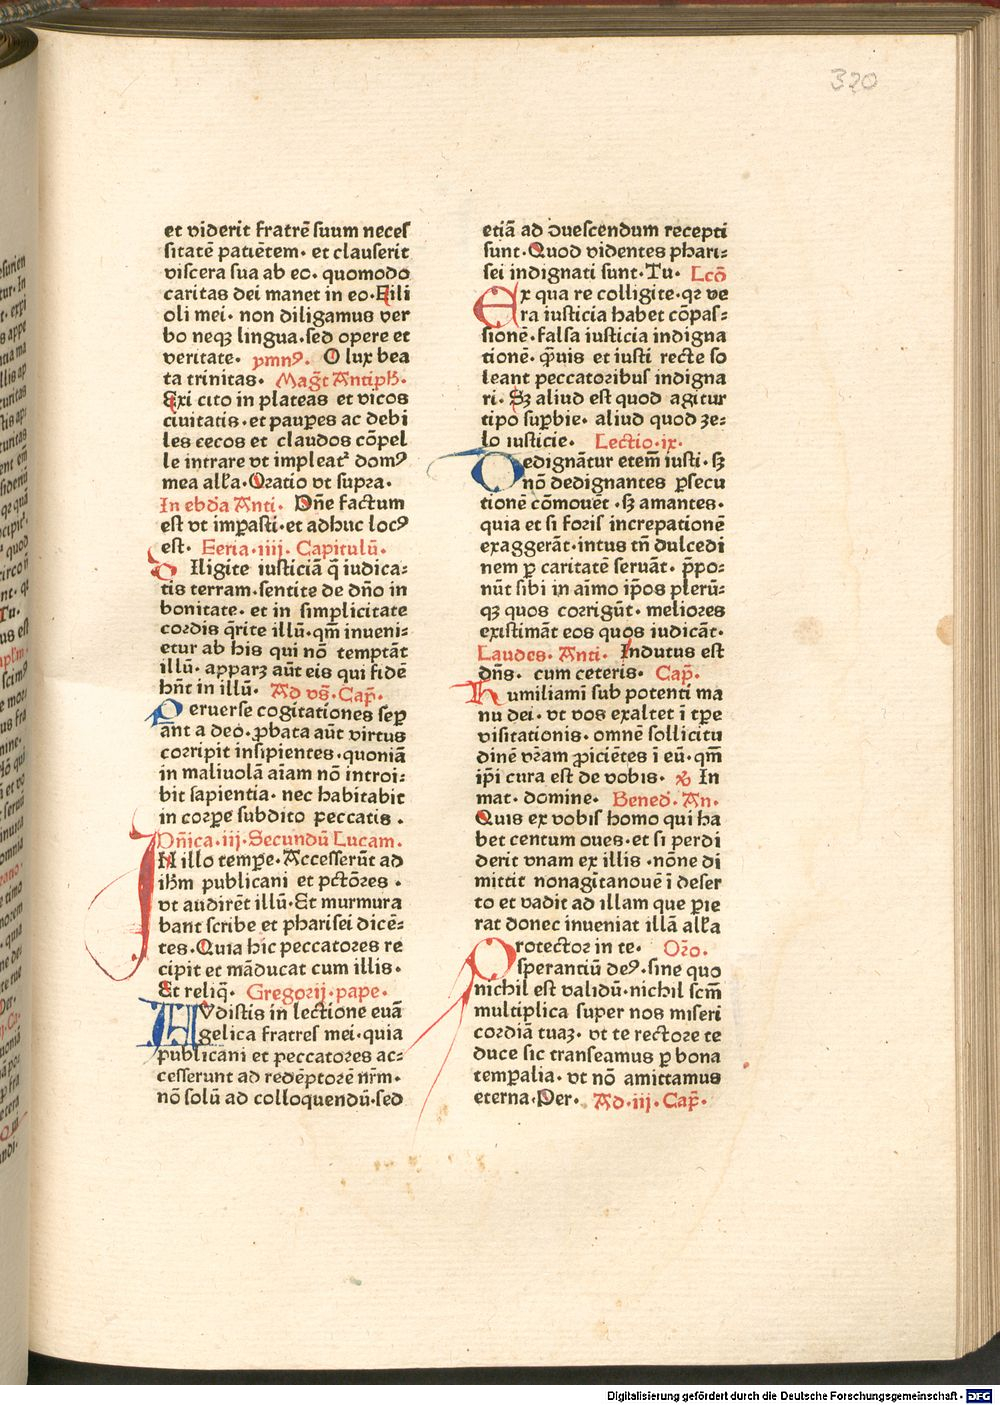 320
et viderit fratrē suum necess
sitatē patiētem· et clauserit
viscera sua ab eo· quomodo
caritas dei manet in eo·Fili
oli mei· non diligamus ver
bo neqꝫ lingua·sed opere et
veritate· ymnꝰ. O lux bea
ta trinitas· Mag̃t Antiph·
Exi cito in plateas et vicos
ciuitatis·et paup̲es ac debi
les cecos et claudos cōpel
le intrare vt impleat᷑ domꝰ
mea all'a·Oratio vt supra·
In ebda Anti· Dn̄e factum
est vt imp̲asti·et adhuc locꝰ
est· Feria·iiij· Capitulū·
Diligite iusticiā q̄ iudica⸗
tis terram·sentite de dn̄o in
bonitate· et in simplicitate
cordis q̄rite illū·qm̄ inueni⸗
etur ab his qui nō temptāt
illū· apparꝫ aūt eis qui fidē
hn̄t in illū· Ad vs̄· Cap̄·
Peruerse cogitationes sep̲
ant a deo·p̲bata aūt virtus
corripit insipientes·quoniā
in maliuolā aīam nō introi⸗
bit sapientia· nec habitabit
in corp̲e subdito peccatis·
Dn̄ica·iij·Secundū Lucam·
IN illo temp̲e·Accesserūt ad
ihm̄ publicani et pctōres·
vt audirēt illū·Et murmura
bant scribe et pharisei dicē⸗
tes·Quia hic peccatores re
cipit et māducat cum illis·
Et reliq̄· Gregorij·pape·
AVdistis in lectione euā
gelica fratres mei·quia
publicani et peccatores ac⸗
cesserunt ad redēptorē nr̄m·
nō solū ad colloquendū·sed
etiā ad vescendum recepti
sunt·Quod videntes phari⸗
sei indignati sunt·Tu· Lcō
Ex qua re colligite·qꝛ ve
ra iusticia habet cōpas⸗
sionē·falsa iusticia indigna
tionē· q̄uis et iusti recte so
leant peccatoribus indigna
ri· Sꝫ aliud est quod agitur
tipo sup̲bie· aliud quod ze⸗
lo iusticie· Lectio·ix·
Dedignātur etem̄ iusti·sꝫ
nō dedignantes p̲secu
tionē cōmouēt·sꝫ amantes·
quia et si foris increpationē
exaggerāt·intus tn̄ dulcedi
nem p̲ caritatē seruāt· p̄po⸗
nūt sibi in aīmo ip̄os plerū⸗
qꝫ quos corrigūt· meliores
existimāt eos quos iudicāt·
Laudes· Anti· Indutus est
dn̄s· cum ceteris· Cap̄·
Humiliamī sub potenti ma
nu dei·vt vos exaltet ī tp̄e
visitationis·omnē sollicitu
dinē vr̄am p̲iciētes ī eū·qm̄
ip̄i cura est de vobis· ℟ In
mat· domine· Bened·An·
Quis ex vobis homo qui ha
bet centum oues·et si perdi
derit vnam ex illis·nōne di
mittit nonagītanouē ī deser
to et vadit ad illam que p̲ie
rat donec inueniat illā all'a
Protector in te· Orō·
sperantiū deꝰ·sine quo
nichil est validū·nichil scm̄
multiplica super nos miseri
cordiā tuaꝫ· vt te rectore te
duce sic transeamus p̲ bona
temp̲alia·vt nō amittamus
eterna·Per· Ad·iij·Cap̄·
Digitalisierung gefördert durch die Deutsche Forschungsgemeinschaft - DFG